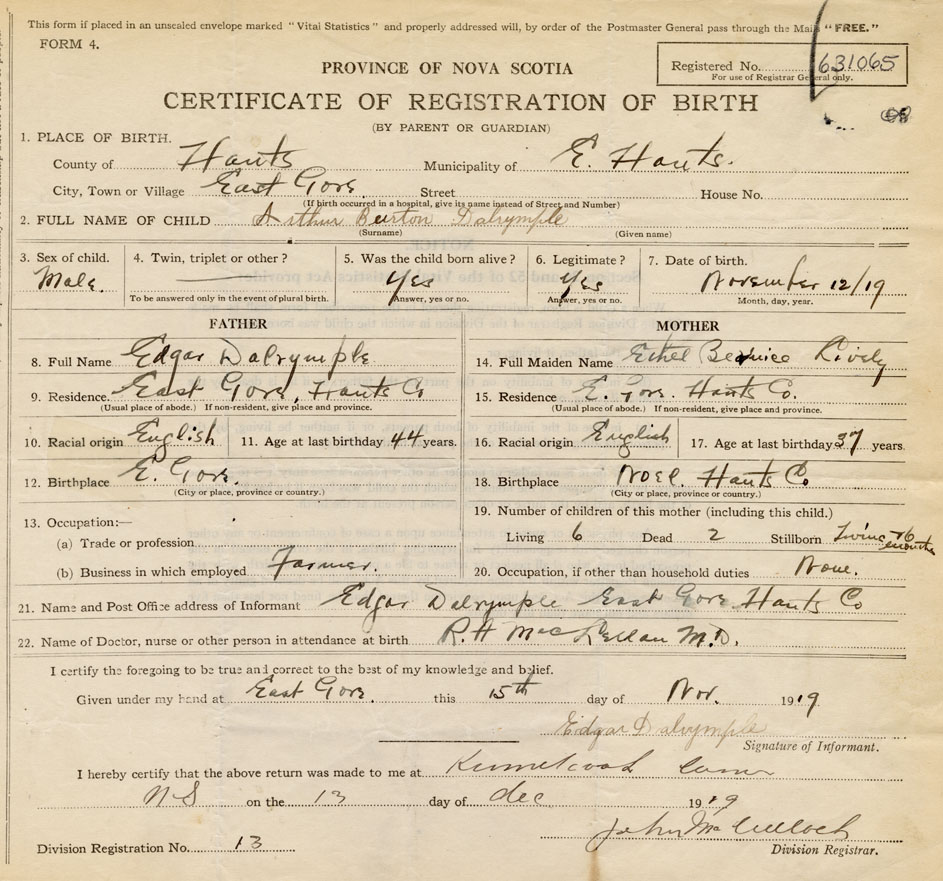 This form if placed in an unsealed envelope marked "Vital Statistics" and properly addressed will, by order of the Postmaster General pass through the Mail "FREE."
FORM 4.
Registered No. 631065
For use of Registrar General only.
PROVINCE OF NOVA SCOTIA
CERTIFICATE OF REGISTRATION OF BIRTH
(BY PARENT OR GUARDIAN)
1. PLACE OF BIRTH.
County of Hants Municipality of E. Hants.
City, Town or Village East Gore Street House No.
(If birth occurred in a hospital, give its name instead of Street and Number)
2. FULL NAME OF CHILD Arthur Burton Dalrymple
(Surname) (Given name)
3. Sex of child. 4. Twin, triplet or other? 5. Was the child born alive? 6. Legitimate? 7. Date of birth.
Male. Yes Yes November 12/19
To be answered only in the event of plural birth. Answer, yes or no. Answer, yes or no. Month, day, year.
FATHER MOTHER
8. Full Name Edgar Dalrymple 14. Full Maiden Name Ethel Bernice Lively
9. Residence. East Gore, Hants Co 15. Residence E. Gore Hants Co.
(Usual place of abode.) If non-resident, give place and province. (Usual place of abode.) If non-resident, give place and province.
10. Racial origin English 11. Age at last birthday 44 years. 16. Racial origin English 17. Age at last birthday 37 years.
12. Birthplace E. Gore. 18. Birthplace Noel Hants Co
(City or place, province or country.) (City or place, province or country.)
13. Occupation:— 19. Number of children of this mother (including this child.)
(a) Trade or profession Living 6 Dead 2 Stillborn
(b) Business in which employed Farmer. 20. Occupation, if other than household duties None.
21. Name and Post Office address of Informant Edgar Dalrymple East Gore Hants Co
22. Name of Doctor, nurse or other person in attendance at birth R. H MacLellan M.D.
I certify the foregoing to be true and correct to the best of my knowledge and belief.
Given under my hand at East Gore this 15th day of Nov. 1919
Edgar Dalrymple
Signature of Informant.
I hereby certify that the above return was made to me at Kennetcook Corner
NS on the 13 day of dec 1919
John McCulloch
Division Registration No. 13 Division Registrar.